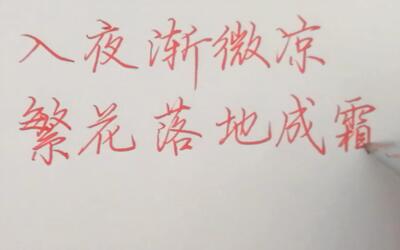 入夜渐微凉
繁花落地成霜